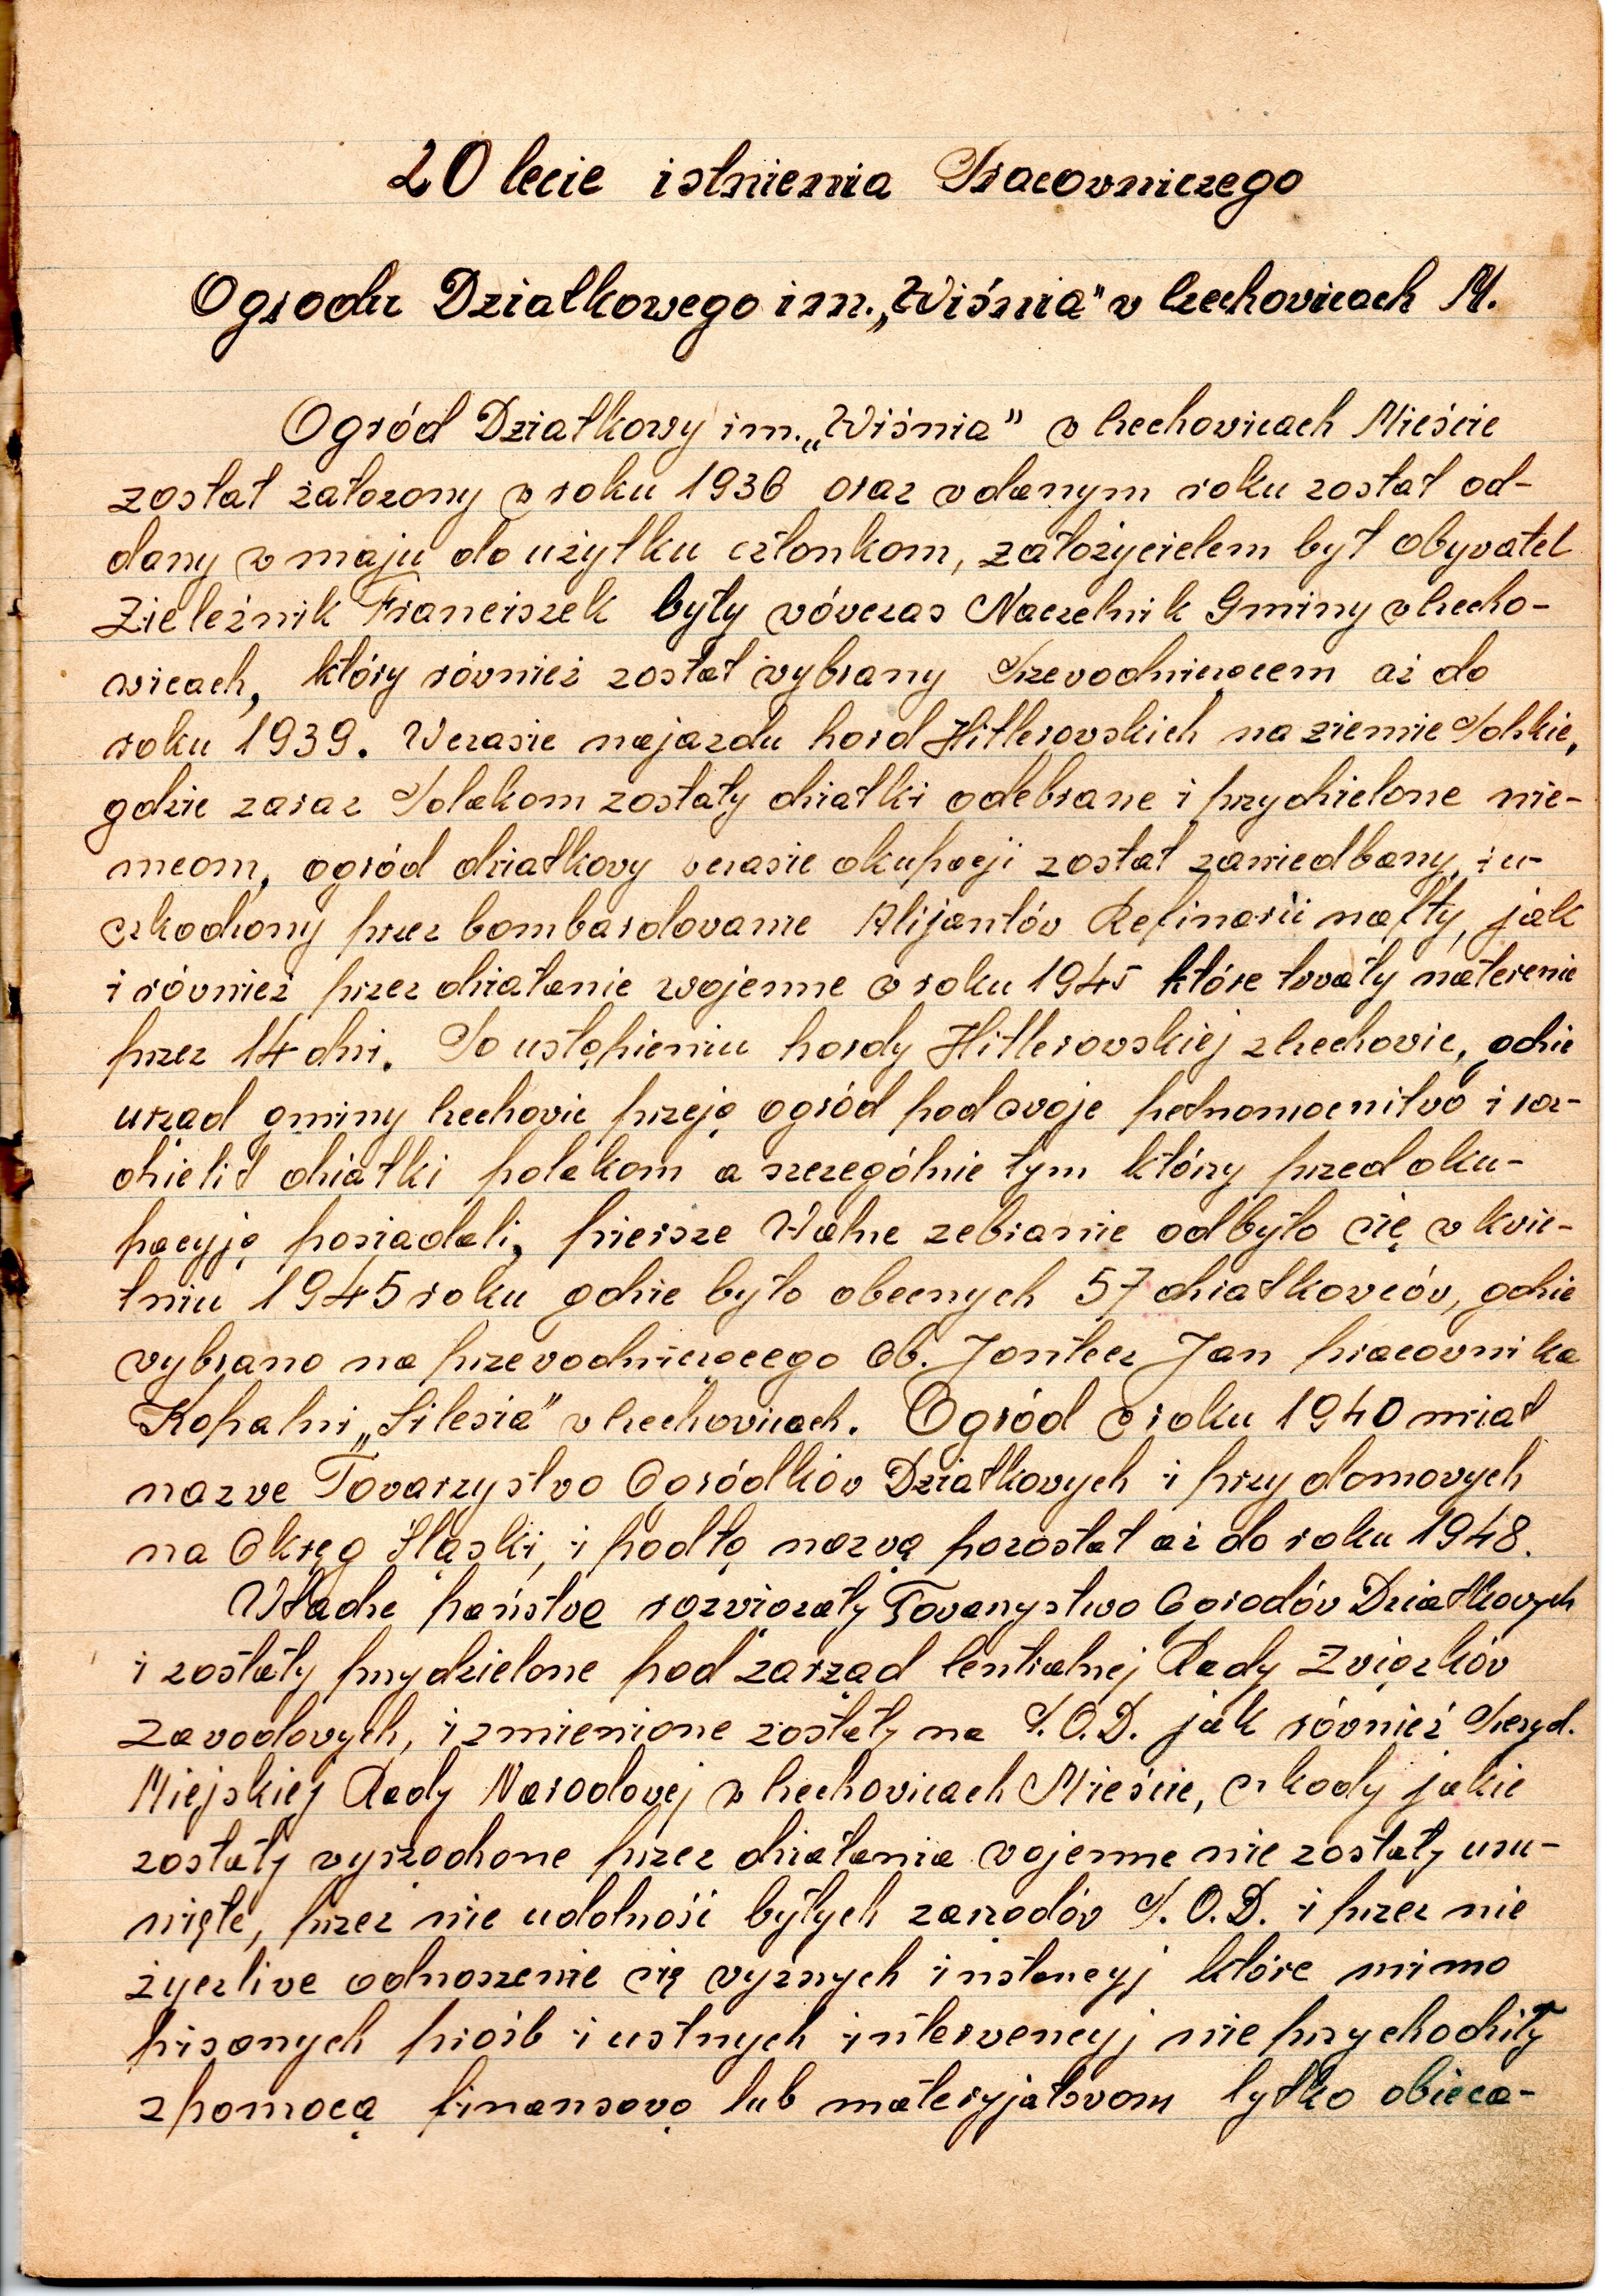 20 lecie istnienia Pracowniczego
Ogrodu Działkowego im. „Wiśnia" w Czechowicach M.
Ogród Działkowy im. „Wiśnia" w Czechowicach Mieście
został załozony w roku 1936 oraz w danym roku został od-
dany w maju do użytku członkom, założycielem był obywatel
Zieleźnik Franciszek były wówczas Naczelnik Gminy w Czecho-
wicach, który również został wybrany Przewodniczącem aż do
roku 1939. W czasie najazdu hord Hitlerowskich na ziemie Polskie,
gdzie zaraz Polakom zostały działki odebrane i przydzielone nie-
mcom, ogród działkowy w czasie okupacji został zaniedbany i u-
szkodzony przez bombardowanie Alijantów Refinarii nafty, jak
i również przez działanie wojenne w roku 1945 które trwały na terenie
przez 14 dni. Po ustąpieniu hordy Hitlerowskiej z Czechowic, gdzie
urząd gminy Czechowic przeją ogród pod swoje pełnomocnitwo i roz-
dzielił działki polakom a szczególnie tym którzy przed oku-
pacyją posiadali, piersze Walne zebranie odbyło się w kwie-
tniu 1945 roku gdzie było obecnych 57 działkowców, gdzie
wybrano na przewodniczącego Ob. Jontcer Jan pracownika
Kopalni „Silesia" w Czechowicach. Ogród w roku 1940 miał
nazwe Towarzystwo Ogródków Działkowych i przydomowych
na Okręg Śląski, i podtą nazwą pozostał aż do roku 1948.
Władze państwa rozwiązały Towarzystwo Ogrodów Działkowych
i zostały przydzielone pod zarząd Centralnej Rady Związków
Zawodowych, i zmienione zostały na P.O.D. jak również Prezyd.
Miejskiej Rady Narodowej w Czechowicach Mieście, szkody jakie
zostały wyrządzone przez działania wojenne nie zostały usu-
nięte, przez nie udolność byłych zarządów P.O.D. i przez nie
życzliwe odnoszenie się wyższych instancyj które mimo
pisanych prośb i ustnych interwencyj nie przychodziły
z pomocą finansową lub materyjałowom tylko obieca-